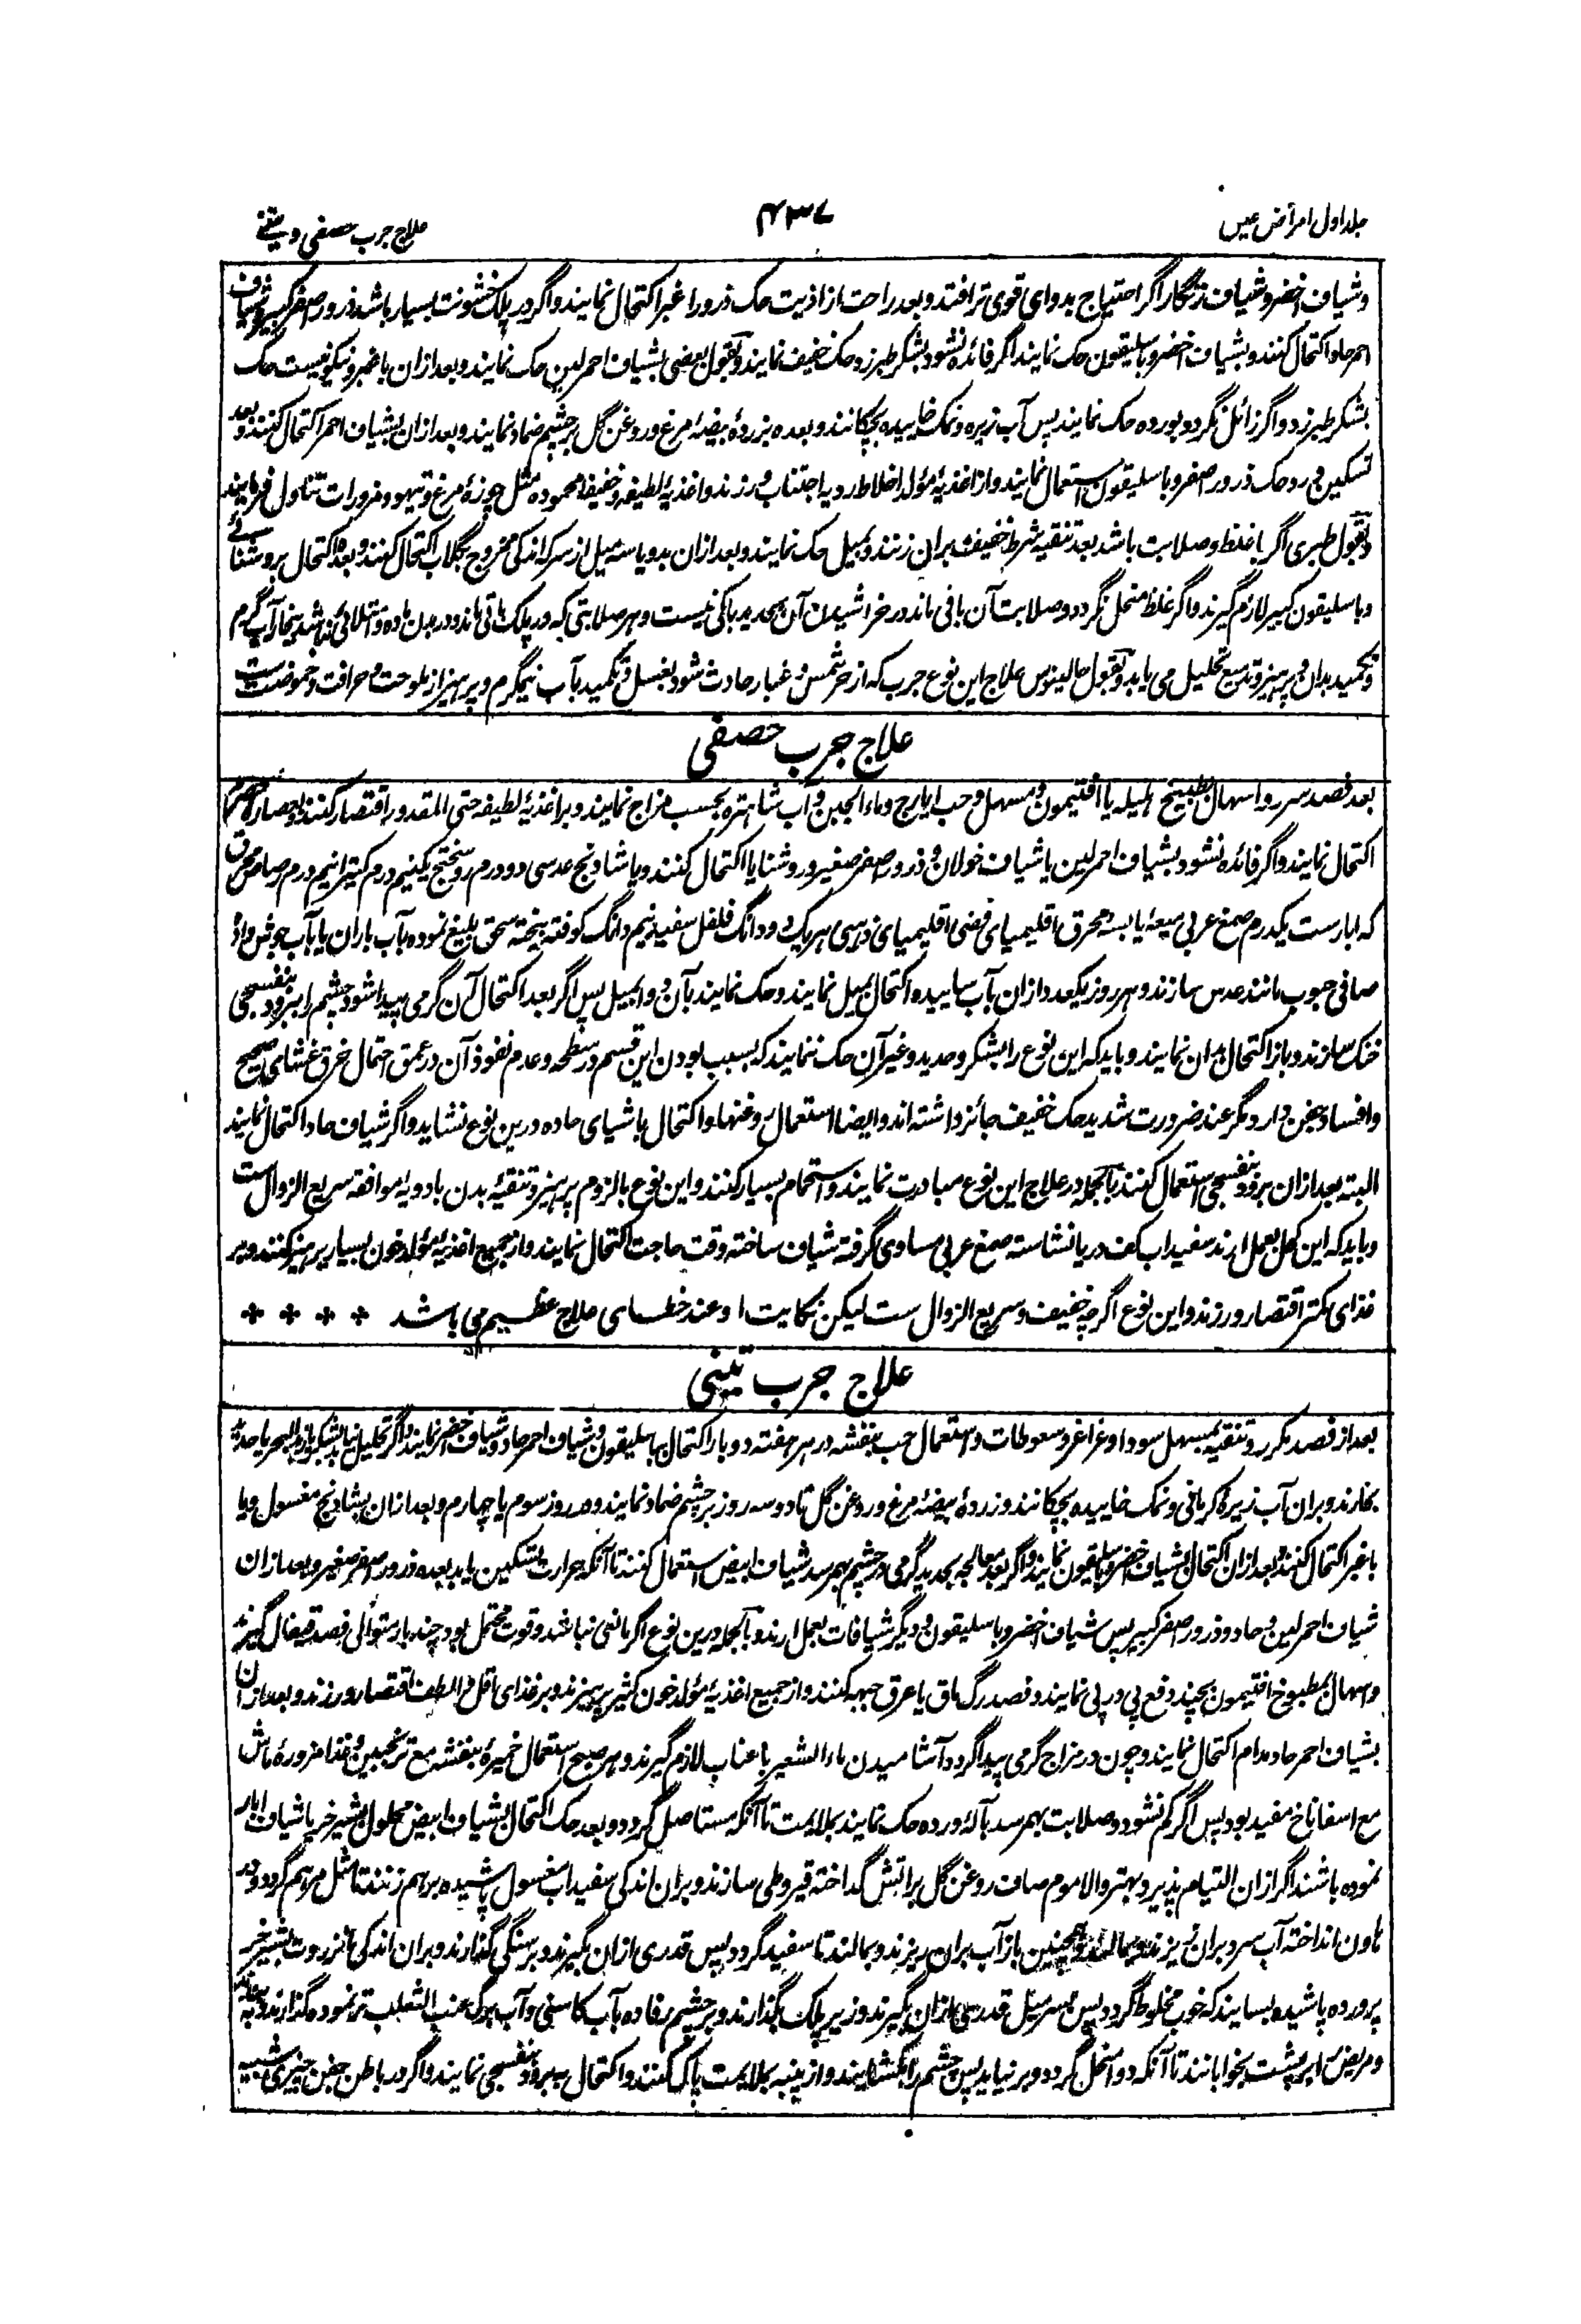 جلد اول امراض عین
۴۳۷
علاج جرب حصفی و تینے
و شیاف اخضر و شیاف زنگار اگر احتیاج بدوای قوی تر افتد و بعد راحت از اذیت حک ذرور اغبر اکتحال نمایند و اگر در پلک خشونت بسیار باشد ذرور اصفر کبیر و شیاف
احمر حاد اکتحال کنند و بشیاف اخضر و باسلیقون حک نمایند اگر فائده نشود بشکر طبرزد حک خفیف نمایند و بقول بعضی بشیاف احمر لین حک نمایند و بعد ازان باغبر و نیکو نیست حک
بشکر طبرزد و اگر زائل نگردد بورده حک نمایند پس آب زیره و نمک خاییده بچکانند و بعده بزردهٔ بیضهٔ مرغ و روغن گل بر چشم ضماد نمایند و بعد ازان بشیاف احمر اکتحال کنند و بعد
تسکین درد حک ذرور اصفر و باسلیقون استعمال نمایند و از اغذیهٔ مؤلد اخلاط ردیه اجتناب ورزند و اغذیهٔ لطیفه و خفیفه محموده مثل چوزهٔ مرغ و تیهو و مزورات تناول فرمایند
و بقول طبری اگر باغلظ و صلابت باشد بعد تنقیه شرط خفیف بران زنند و بمیل حک نمایند و بعد ازان بدو یا سه میل از سرکه اندکی ممزوج بگلاب اکتحال کنند و بعده اکتحال بروشنائے
و باسلیقون کبیر لازم گیرند و اگر غلظ منحل نگردد و صلابت آن باقی ماند در خراشیدن آن بحدید باکی نیست و هر صلابتی که در پلک باقی ماند و در بدن ماده و امتلائی نباشد ببخار آب گرم
و تکمید بدان و پرهیز و توسیع تحلیل می یابد و بقول جالینوس علاج این نوع جرب که از حر شمس و غبار حادث شود بغسل و تکمید بآب نیمگرم و پرهیز از ملوحت و حرافت و حموضت ست
علاج جرب حصفی
بعد فصد سررو و اسهال بطبیخ هلیله یا افتیمون و مسهل و حب ایارج و ماء الجبن و آب شاهتره بحسب مزاج نمایند و بر اغذیهٔ لطیفه حتی المقدور اقتصار کنند و
اکتحال نمایند و اگر فائده نشود بشیاف احمر لین یا شیاف خولان و ذرور اصفر صغیر و روشنایا اکتحال کنند و یا شادنج عدسی دو درم روسختج یکنیم درم کتیرا نیم درم رصاص محرق
که ابارست یکدرم صمغ عربی میعهٔ یابسه محرق اقلیمیای فضی اقلیمیای ذهبی هر یک دو دانگ فلفل سفید نیم دانگ کوفته بیخته سحق بلیغ نموده بآب باران یا بآب جوش داده
صافی حبوب مانند عدس سازند و هر روز یکعدد ازان بآب ساییده اکتحال بمیل نمایند و حک نمایند بآن دوا بمیل پس اگر بعد اکتحال آن گرمی پیدا شود چشم را ببرود بنفسجی
خنک سازند و باز اکتحال بدان نمایند و باید که این نوع را بشکر و حدید و غیر آن حک ننمایند که بسبب بودن این قسم در سطح و عدم نفوذ آن در عمق احتمال خرق غشای صحیح
و افساد جفن دارد مگر عند ضرورت شدید حک خفیف جائز داشته اند و ایضا استعمال روغنها و اکتحال باشیای حاده درین نوع نشاید و اگر شیاف حاد اکتحال نمایند
البته بعد ازان برود بنفسجی استعمال کنند بالجمله در علاج این نوع مبادرت نمایند و استحمام بسیار کنند و این نوع بالزوم پرهیز و تنقیهٔ بدن بادویهٔ موافقه سریع الزوال ست
و باید که این کحل بعمل ارند سفیداب کف دریا نشاسته صمغ عربی مساوی گرفته شیاف ساخته وقت حاجت اکتحال نمایند و از جمیع اغذیه مؤلد خون بسیار پرهیز کنند و بر
غذای کمتر اقتصار ورزند و این نوع اگرچه خفیف و سریع الزوال ست لیکن نکایت او عند خطای علاج عظیم می باشد * * * *
علاج جرب تینی
بعد از فصد مکرر و تنقیه بمسهل سودا و غراغر و سعوطات و استعمال حب بنفشه در هر هفته دو بار اکتحال بباسلیقون و شیاف احمر حاد و شیاف اخضر نمایند و اگر تحلیل نیابد بشکر یا زبد البحر یا
بخارند و بران آب زیرهٔ کرمانی و نمک خاییده بچکانند و زردهٔ بیضهٔ مرغ و روغن گل تا دو سه روز بر چشم ضماد نمایند و در روز سوم یا چهارم و بعد ازان بشادنج مغسول و یا
باغبر اکتحال کنند و بعد ازان اکتحال بشیاف اخضر و باسلیقون نمایند و اگر بعد معالجه بحدید گرمی در چشم بهم رسد شیاف ابیض استعمال کنند تا آنکه حرارت تسکین یابد بعده ذرور اصفر صغیر و بعد ازان
شیاف احمر لین و حاد و ذرور اصفر کبیر پس شیاف اخضر و باسلیقون و دیگر شیافات بعمل ارند و بالجمله درین نوع اگر مانعی نباشد و قوت محتمل بود چند بار متوالی فصد قیفال گیرند
و اسهال بمطبوخ افتیمون بچند دفع پی در پی نمایند و فصد رگ ماق یا عرق جبهه کنند و از جمیع اغذیهٔ مؤلد خون کثیر پرهیزند و بر غذای اقل و الطف اقتصار ورزند و بعد ازان
بشیاف احمر حاد مدام اکتحال نمایند و چون در مزاج گرمی پیدا گردد آشامیدن ماء الشعیر با عناب لازم گیرند و هر صبح استعمال خمیرهٔ بنفشه مع ترنجبین و غذا مزورهٔ ماش
مع اسفاناخ مفید بود پس اگر کم نشود و صلابت بهم رسد بآلهٔ ورده حک نمایند بملایمت تا آنکه مستاصل گردد و بعد حک اکتحال بشیاف ابیض محلول بشیر خر یا شیاف ابار
نموده باشند اگر ازان التیام پذیرد بهتر والا موم صاف روغن گل بر آتش گداخته قیروطی سازند و بران اندکی سفیداب مغسول پاشیده بر هم زنند تا مثل مرهم گردد و در
هاون انداخته آب سرد بران ریزند و بمالند و همچنین باز آب بران ریزند و بمالند تا سفید گردد پس قدری ازان بگیرند و بر سنگی گذارند و بران اندکی انزروت بشیر خر
پرورده پاشیده بسایند که خوب مخلوط گردد پس بسر میل قدری ازان بگیرند و زیر پلک بگذارند و بر چشم رفاده بآب کاسنی و آب برگ عنب الثعلب تر نموده گذارند و
و مریض را بر پشت بخوابانند تا آنکه دوا منحل گردد و بر نیاید پس چشم را بکشایند و از پنبه بملایمت پاک کنند و اکتحال ببرود بنفسجی نمایند و اگر در باطن جفن چیزی شبیه